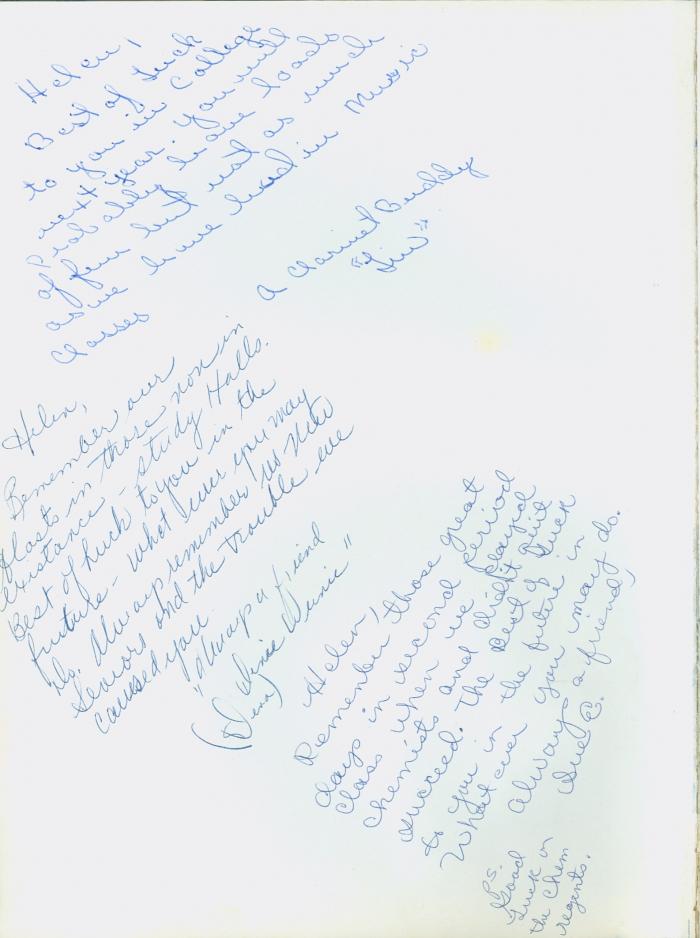 Helen,
Best of Luck
to you in College
next year. You will
Probably have loads
of fun but not as much
as we have had in Music
Classes
A Clarinet Buddy
Helen,
Remember our
blasts in those non in
existance - study Halls.
Best of Luck to you in the
future - what ever you may
Do. Always remember us New
Seniors and the trouble we
caused you
"Always a friend
Helen,
Remember those great
days in second period
class when we played
chemists and didn't quit
succeed. The Best of Luck
to you in the future in
What ever you may do.
Always a friend,
Sue C.
P.S.
Good
Luck on
the Chem
regents.